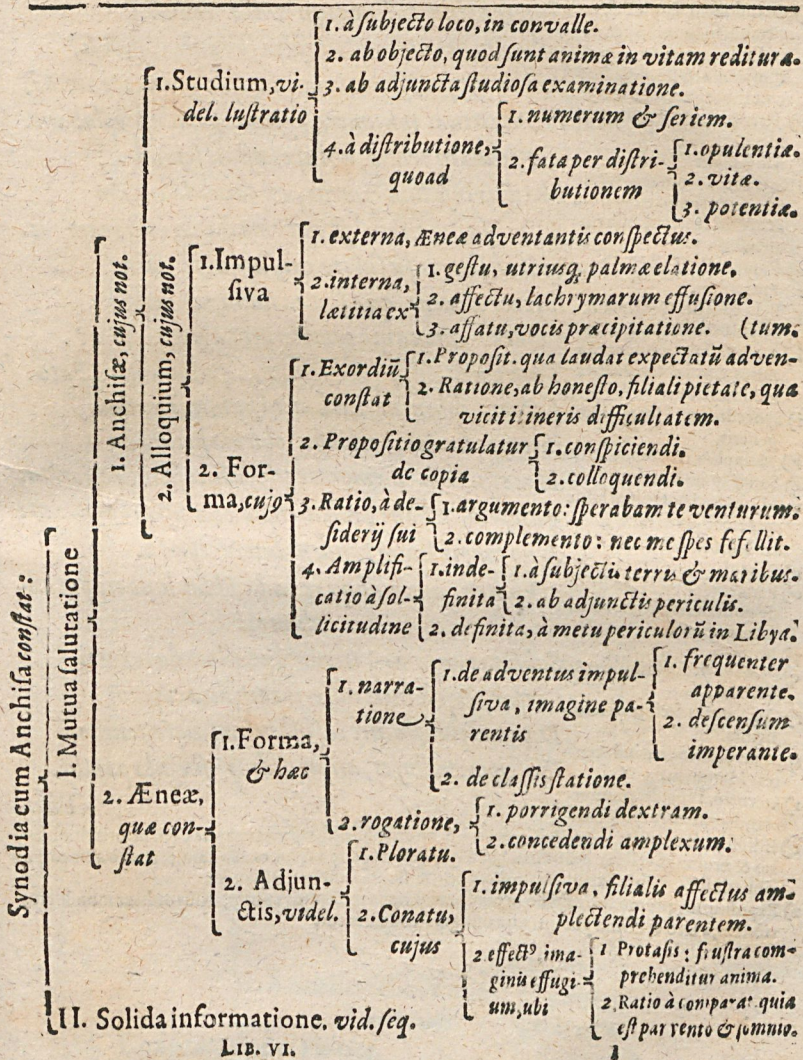 Synodia cum Anchisa constat:
I. Mutua salutatione
1. Anchisæ, cujus not.
1. Studium, vi-
del. lustratio
1. à subjecto loco, in convalle.
2. ab objecto, quod sunt animæ in vitam redituræ.
3. ab adjuncta studiosa examinatione.
4. à distributione,
quoad
1. numerum & seriem.
2. fata per distri-
butionem
1. opulentiæ.
2. vitæ.
3. potentiæ.
2. Alloquium, cujus not.
1. Impul-
siva
1. externa, Æneæ adventantis conspectus.
2. interna,
lætitia ex
1. gestu, utriusq; palmæ elatione.
2. affectu, lachrymarum effusione.
3. affatu, vocis præcipitatione.
2. For-
ma, cujꝰ
1. Exordiũ
constat
1. Proposit. qua laudat expectatũ adven-
(tum.
2. Ratione, ab honesto, filiali pietate, qua
vicit itineris difficultatem.
2. Propositio gratulatur
de copia
1. conspiciendi.
2. colloquendi.
3. Ratio, à de-
siderij sui
1. argumento: sperabam te venturum.
2. complemento: nec me spes fefellit.
4. Amplifi-
catio à sol-
licitudine
1. inde-
finita
1. à subjectis terris & maribus.
2. ab adjunctis periculis.
2. definita, à metu periculorũ in Libya.
2. Æneæ,
quæ con-
stat
1. Forma,
& hæc
1. narra-
tione
1. de adventus impul-
siva, imagine pa-
rentis
1. frequenter
apparente.
2. descensum
imperante.
2. de classis statione.
2. rogatione,
1. porrigendi dextram.
2. concedendi amplexum.
2. Adjun-
ctis, videl.
1. Ploratu.
2. Conatu,
cujus
1. impulsiva, filialis affectus am-
plectendi parentem.
2 effectꝰ ima-
ginis effugi-
um, ubi
1 Protasis: frustra com-
prehenditur anima.
2. Ratio à comparat. quia
est par vento & somnio.
II. Solida informatione. vid. seq.
LIB. VI.